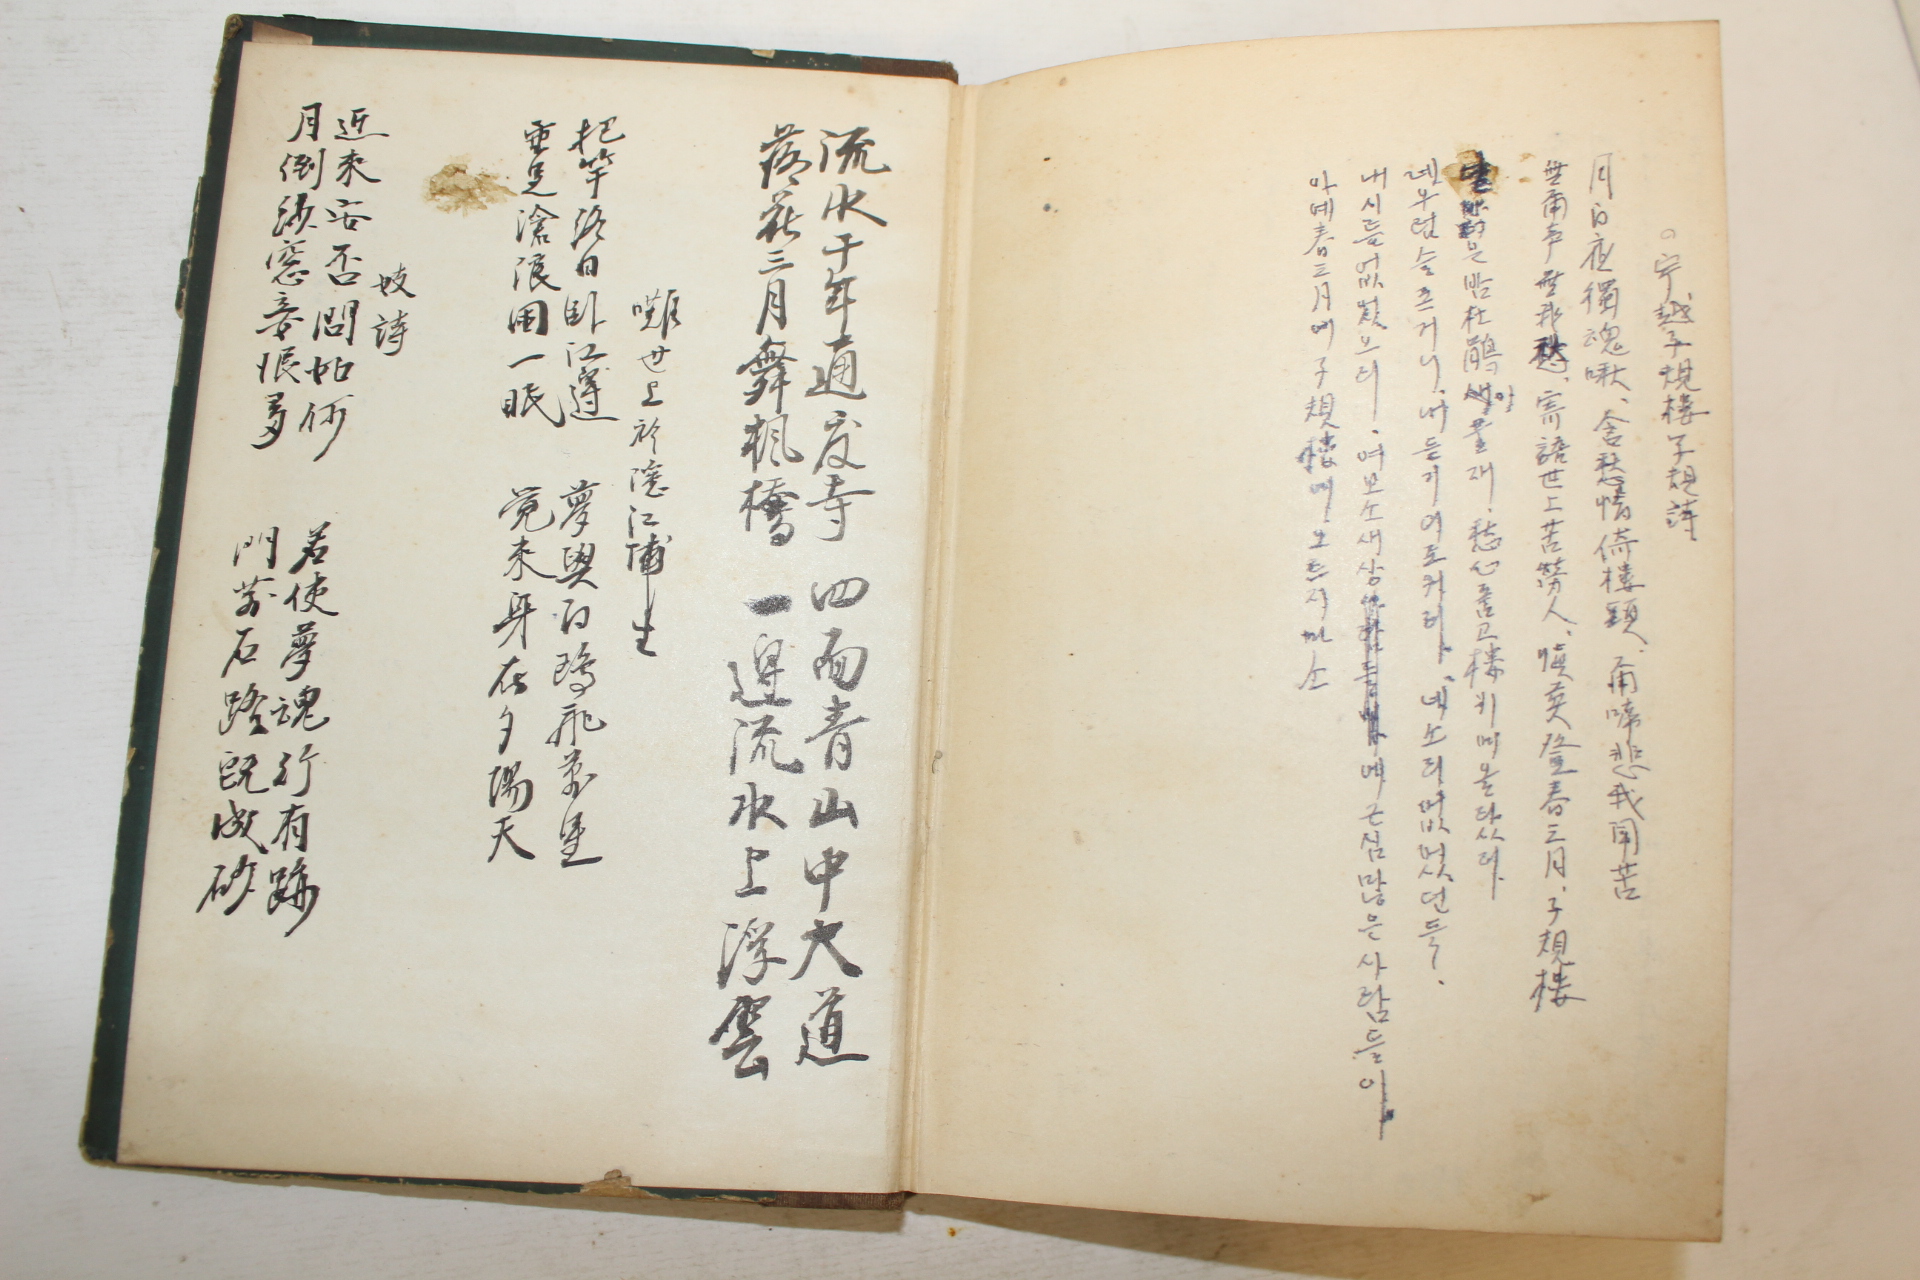 ○寧越子規樓子規詩
月白夜獨魂啾、含愁情倚樓頭、爾啼悲我聞苦
無爾声無我愁、寄語世上苦勞人、愼莫登春三月、子規樓
은밤杜鵑새이울재、愁心품고樓키메올라서라
네우럼슬프거니、내듣기어도커라、네소리없었던들、
내시름없었으리、여보소새상에근심많은사람들이
아예春三月에子規樓에오르지마소
流水千年通度寺 四面青山中大道
落花三月舞楓橋 一邊流水上浮雲
嘆世上於隱江浦生
把竿終日卧江邊 夢與白鷗飛萬里
垂足滄浪困一眠 覚来身在夕陽天
妓詩
近来安否問如何 若使夢魂行有跡
月倒紗窓妾恨多 門前石路既成砂